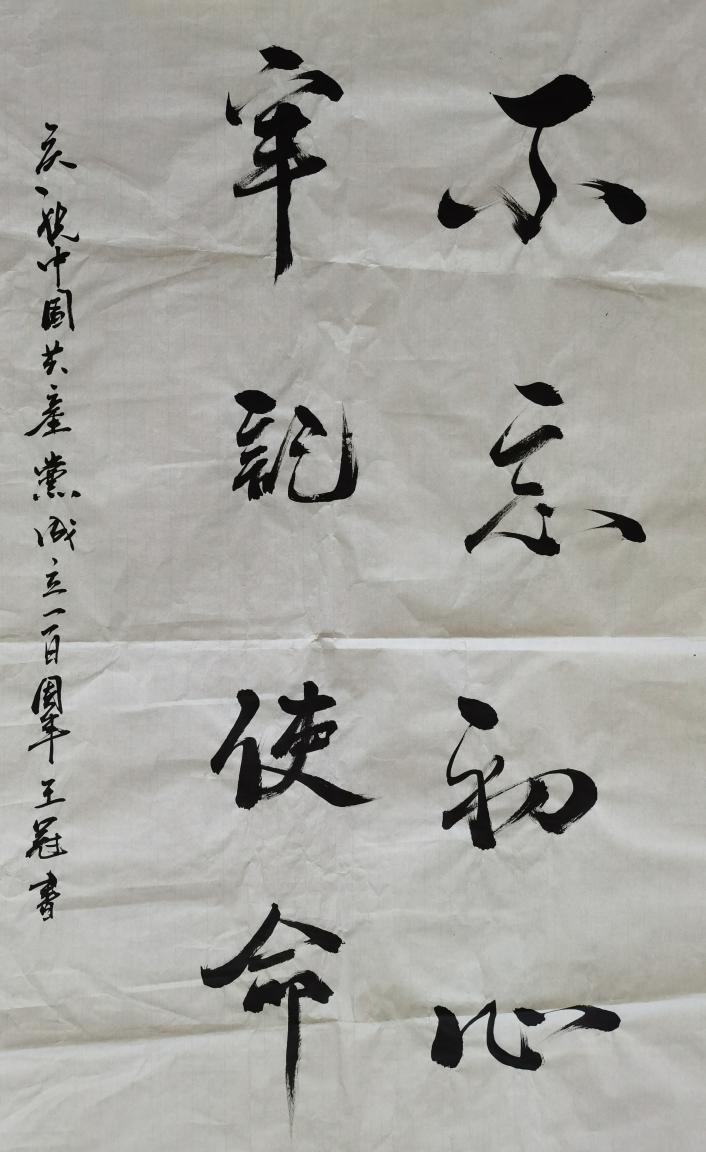 不忘初心
牢記使命
庆祝中国共産黨成立一百周年王冠書